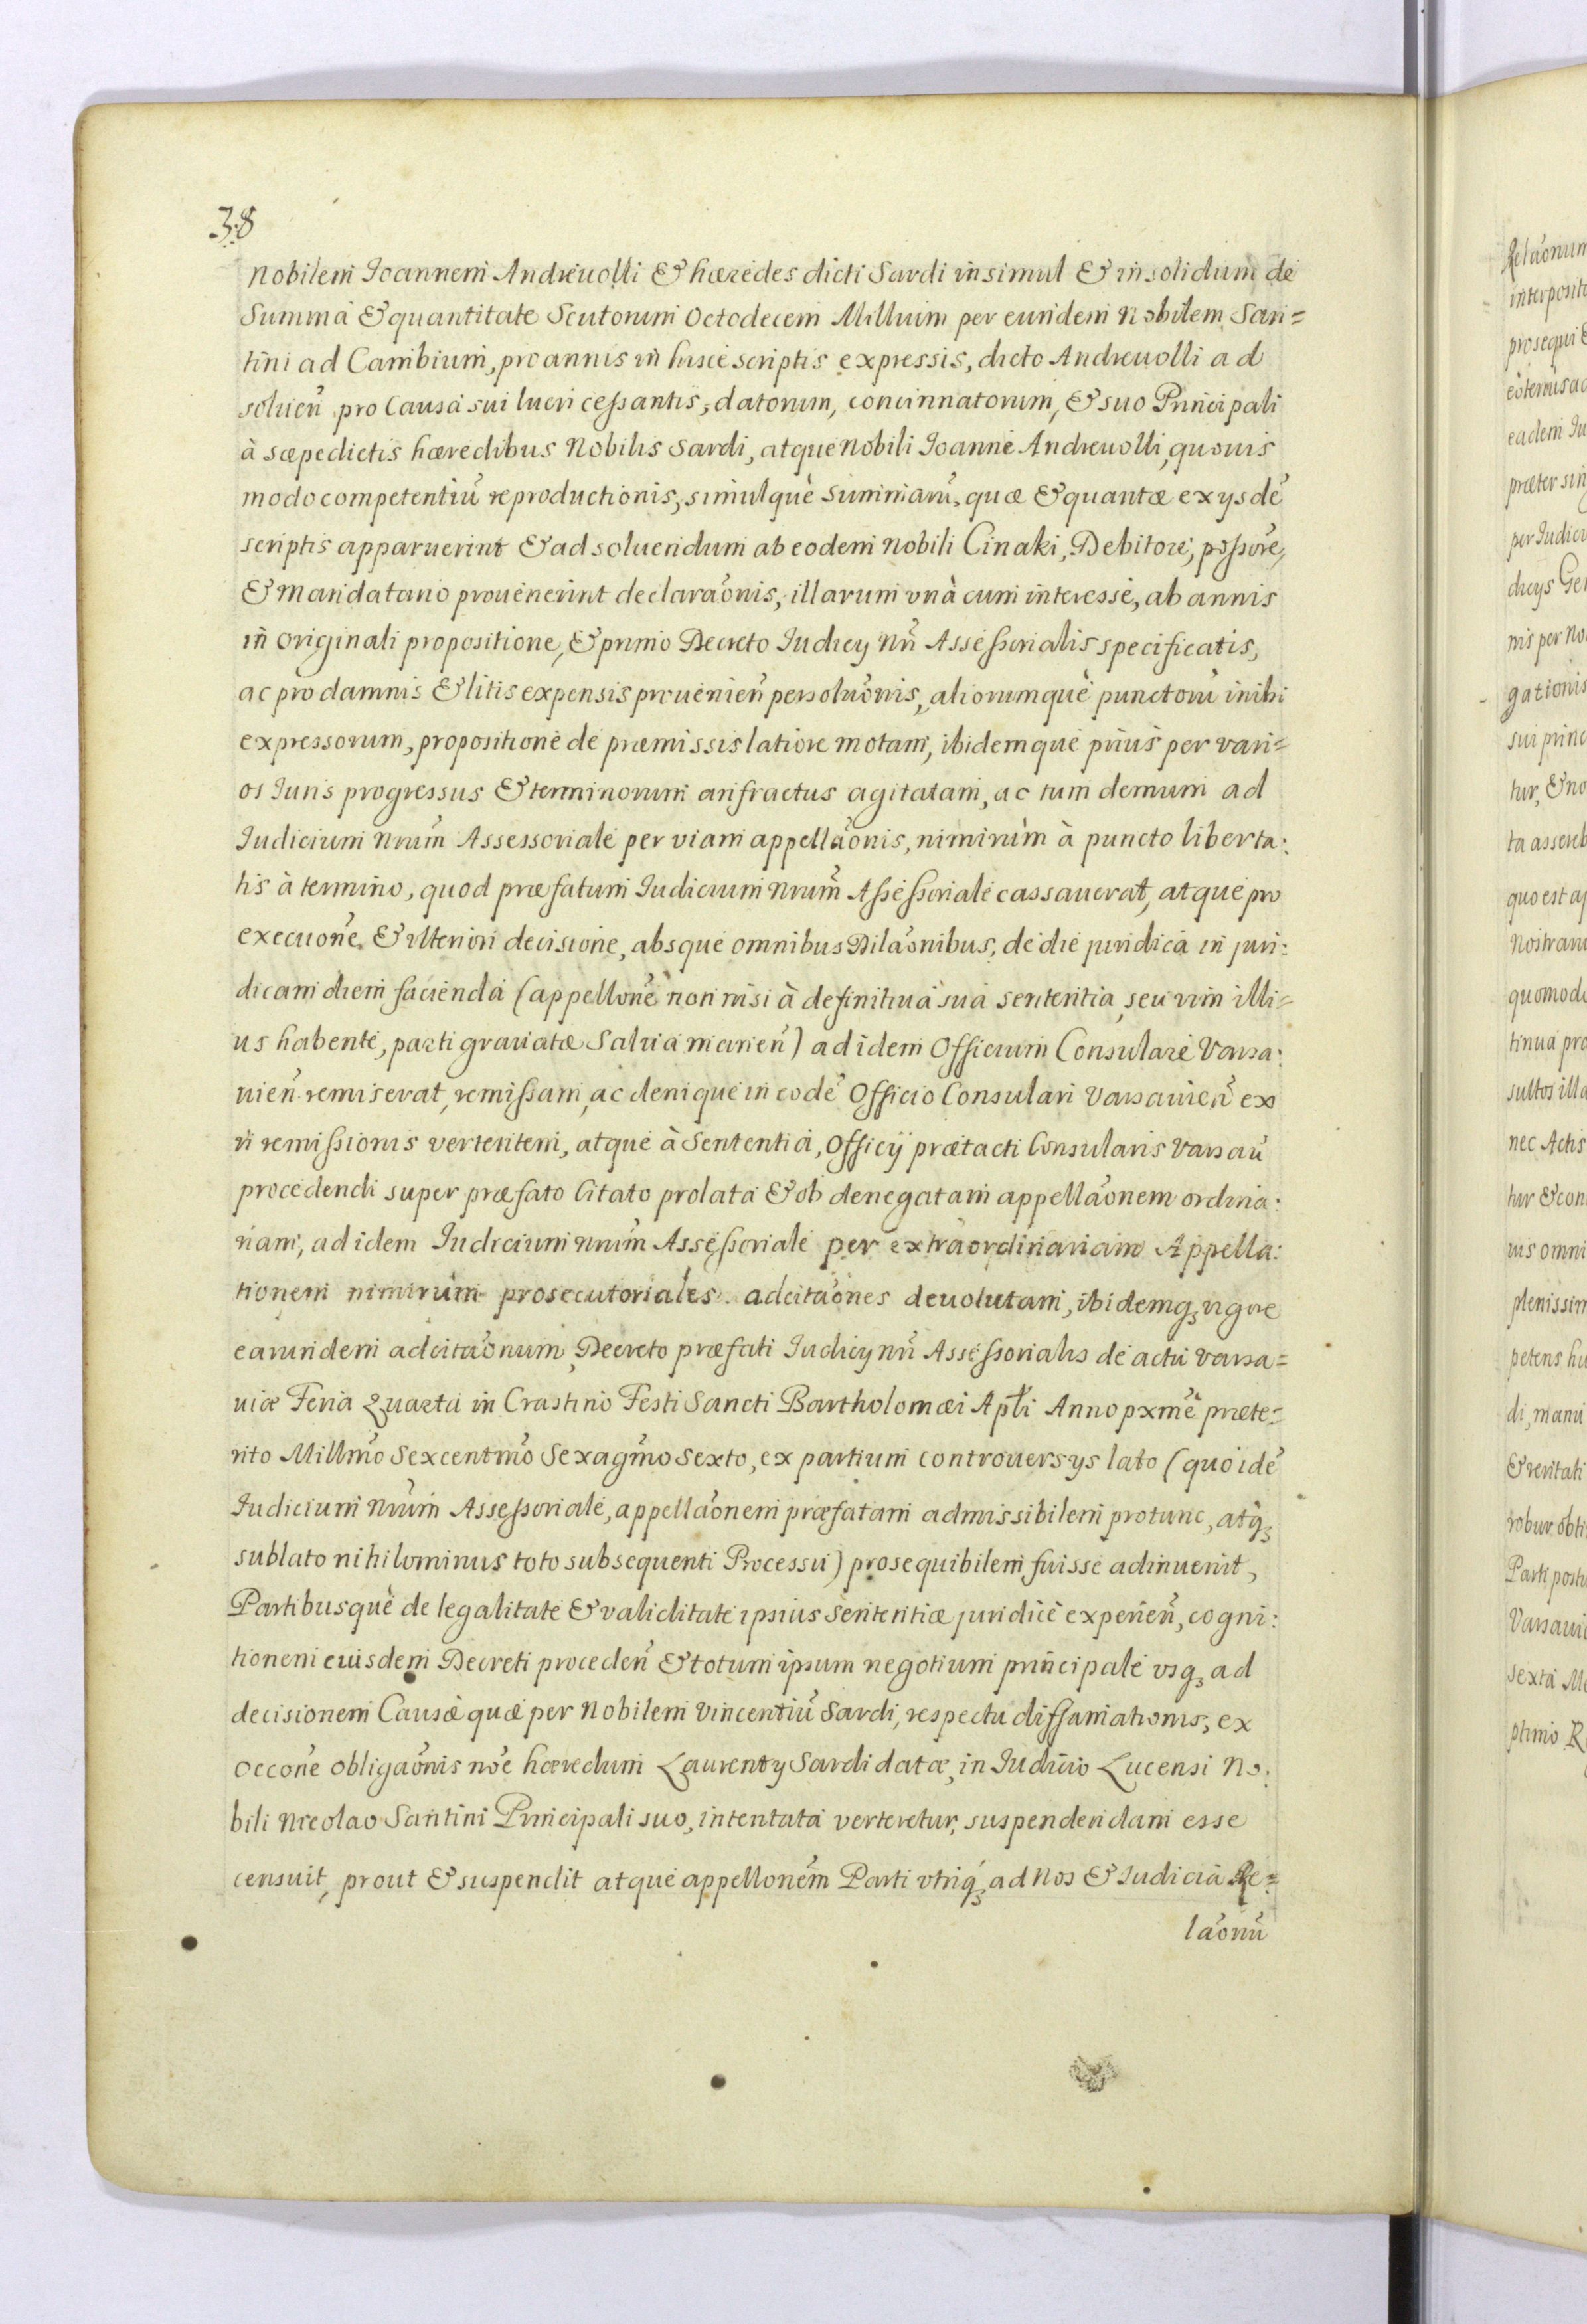 38
Nobilem Joannem Andreuolli & hæredes dicti Sardi insimul & in solidum de
Summa & quantitate Scutorum Octodecem Millium per eundem Nobilem San=
tini ad Cambium, pro annis in hisce scriptis expressis, dicto Andreuolli ad
soluen̄ pro Causa sui lucri cessantis, datorum, concinnatorum, & suo Principali
à sæpedictis hæredibus Nobilis Sardi, atque Nobili Joanne Andreuolli, quouis
modo competentiū reproductionis, simulquè Summarū, quæ & quantæ ex ysdē
scriptis apparuerint & ad soluendum ab eodem Nobili Cinaki, Debitore, possōre,
& mandatario prouenerint declaraōnis, illarum vnà cum interesse, ab annis
in originali propositione, & primo Decreto Judicy Nrī Assessorialis specificatis,
ac pro damnis & litis expensis prouenien̄ persoluōnis, aliorumquè punctorū inibi
expressorum, propositione de præmissis latiore motam, ibidemque priùs per vari=
os Juris progressus & terminorum anfractus agitatam, ac tum demum ad
Judicium Nrūm Assessoriale per viam appellaōnis, nimirùm à puncto liberta:
tis à termino, quod præfatum Judicium Nrūm Assessoriale cassauerat, atque pro
execuōne & vlteriori decisione, absque omnibus Dilaōnibus, de die juridica in juri:
dicam diem facienda (appellōne non nisi à definitiua sua sententia, seu vim illi=
us habente, parti grauatæ salua manen̄) ad idem Officium Consulare Varsa:
uien̄ remiserat, remissam, ac denique in eodē Officio Consulari Varsauien̄ ex
vi remissionis vertentem, atque à Sententia, Officij prætacti Consularis Varsaū
procedendi super præfato Citato prolata & ob denegatam appellaōnem ordina:
riam, ad idem Judicium nrūm Assessoriale per extraordinariam Appella:
tionem nimirùm prosecutoriales adcitaōnes deuolutam, ibidemq₃ vigore
earundem adcitaōnum, Decreto præfati Judicy nrī Assessorialis de actu Varsa=
uiæ Feria Quarta in Crastino Festi Sancti Bartholomæi Aptłi Anno pxmē præte=
rito Millmō Sexcentmō Sexagmō Sexto, ex partium controuersys lato (quo idē
Judicium Nrūm Assessoriale, appellaōnem præfatam admissibilem protunc, atq₃
sublato nihilominus toto subsequenti Processu) prosequibilem fuisse adinuenit,
Partibusquè de legalitate & validitate ipsius Sententiæ juridicè experien̄, cogni:
tionem euisdem Decreti proceden̄ & totum ipsum negotium principale vsq₃ ad
decisionem Causæ quæ per Nobilem Vincentiū Sardi, respectu diffamationis, ex
occōne obligaōnis nōe hæredum Laurenty Sardi datæ, in Judicio Lucensi No:
bili Nicolao Santini Principali suo, intentata verteretur, suspendendam esse
censuit, prout & suspendit atque appellōnem Parti vtriq₃ ad Nos & Judicia Re=
laōnū